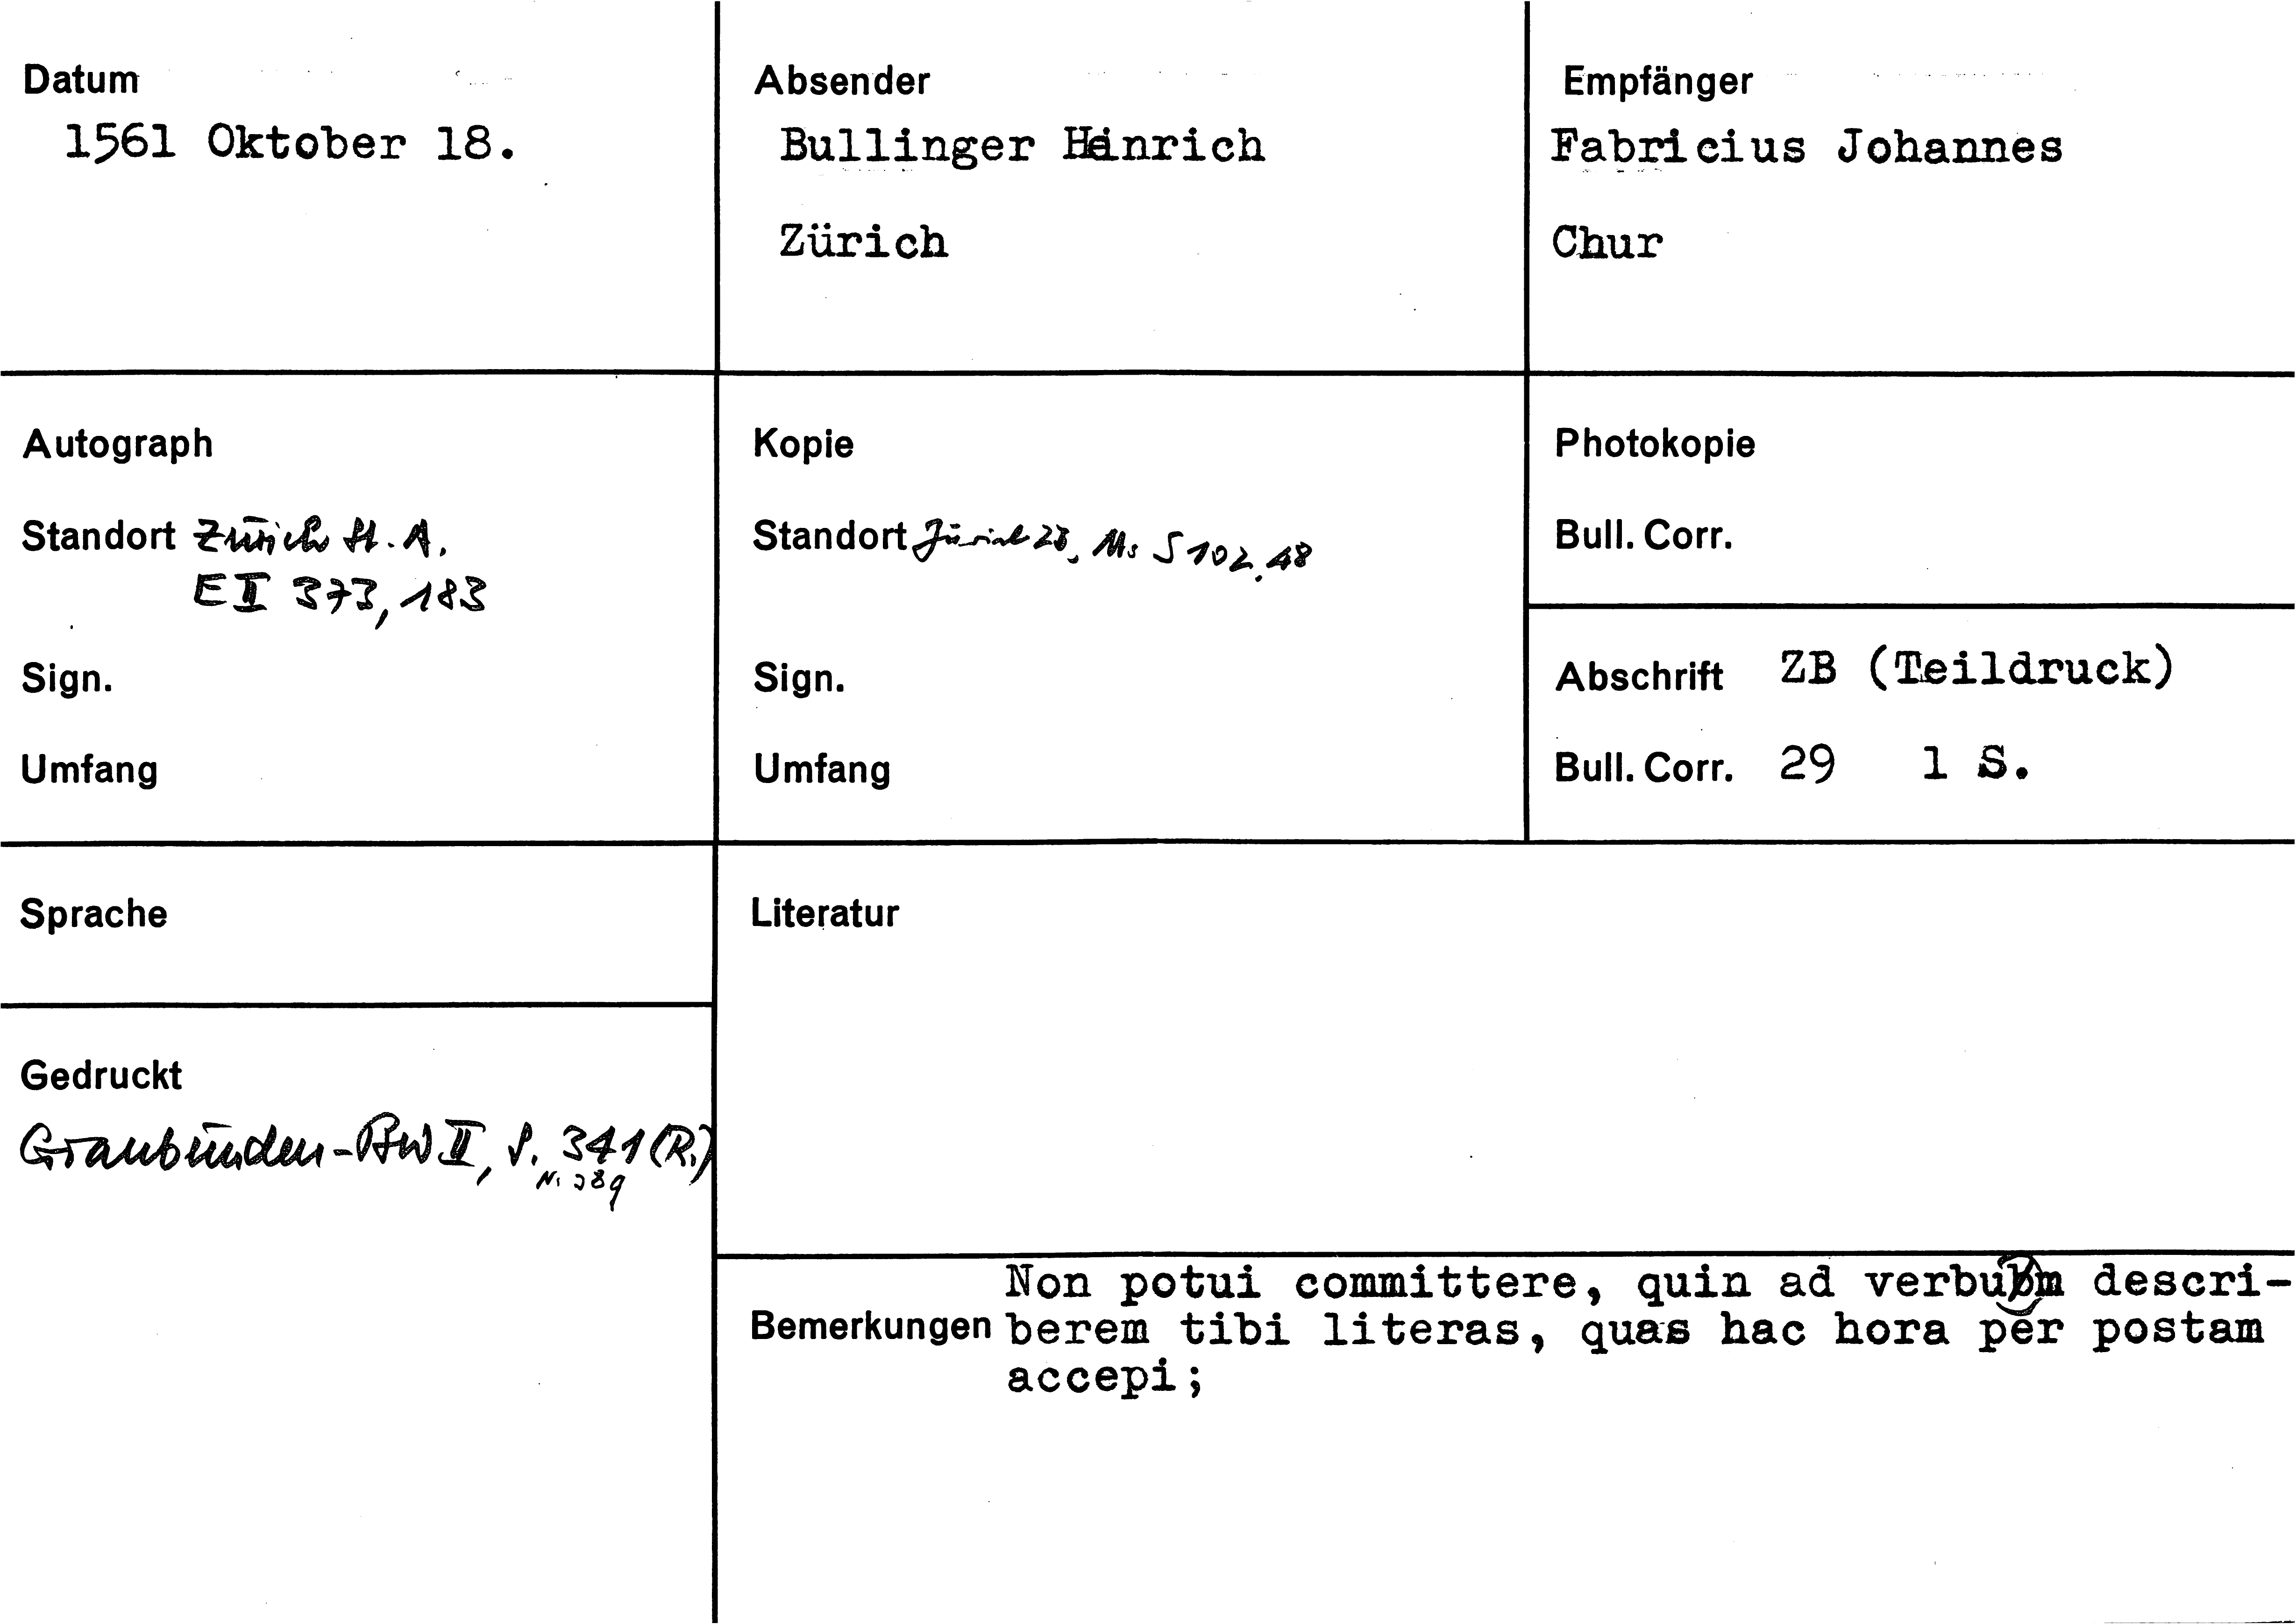 Datum
1561 Oktober 18.
Absender
Bullinger Heinrich
Zürich
Empfänger
Fabricius Johannes
Chur
Autograph
Standort Zürich St. A.
E II 373, 183
Sign.
Umfang
Kopie
Standort Zürich ZB, Ms S 102, 48
Sign.
Umfang
Photokopie
Bull. Corr.
Abschrift ZB (Teildruck)
Bull. Corr. 29 1 S.
Sprache
Gedruckt
Graubünden-BW II, S. 341 (R.)
Nr 389
Literatur
Bemerkungen
Non potui committere, quin ad verbum descri-
berem tibi literas, quas hac hora per postam
accepi;